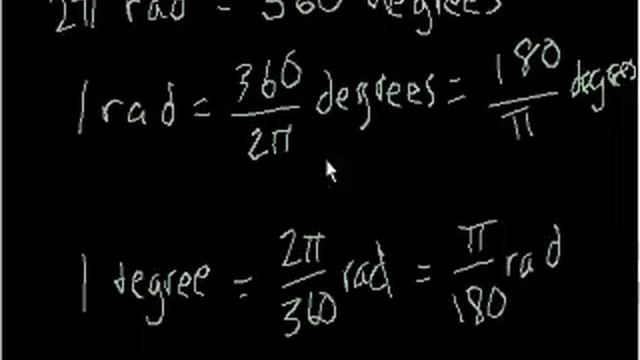 2π rad = 360 degrees
1 rad = 360/2π degrees = 180/π degrees
1 degree = 2π/360 rad = π/180 rad